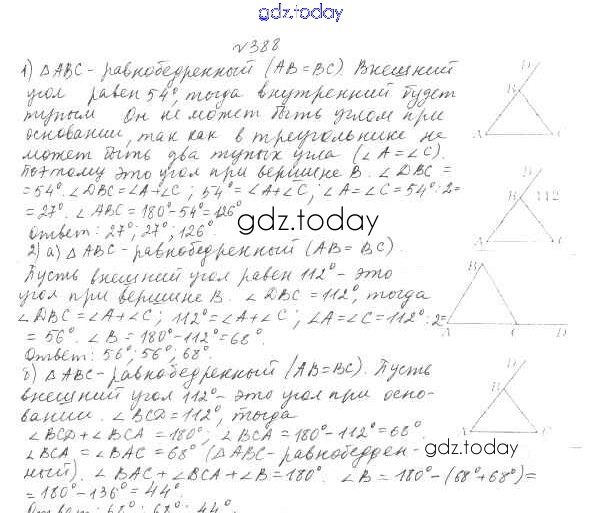 gdz.today
№388
1) △ABC - равнобедренный (AB=BC). Внешний
угол равен 54°, тогда внутренний будет
тупым. Он не может быть углом при
основании, так как в треугольнике не
может быть два тупых угла (∠A=∠C).
Поэтому это угол при вершине B. ∠DBC =
=54°. ∠DBC=∠A+∠C; 54°=∠A+∠C; ∠A=∠C=54°:2=
=27°. ∠ABC=180°-54°=126°
Ответ: 27°; 27°; 126°.
gdz.today
2) а) △ABC - равнобедренный (AB=BC).
Пусть внешний угол равен 112° - это
угол при вершине B. ∠DBC=112°, тогда
∠DBC=∠A+∠C; 112°=∠A+∠C; ∠A=∠C=112°:2=
=56°. ∠B=180°-112°=68°.
Ответ: 56°; 56°; 68°.
б) △ABC - равнобедренный (AB=BC). Пусть
внешний угол 112° - это угол при осно-
вании. ∠BCD=112°, тогда
∠BCD+∠BCA=180°; ∠BCA=180°-112°=68°.
∠BCA=∠BAC=68° (△ABC - равнобедрен-
ный). ∠BAC+∠BCA+∠B=180°. ∠B=180°-(68°+68°)=
=180°-136°=44°.
Ответ: 68°; 68°; 44°.
D
B
A C
D
B 112
A C
B
A C D
D
B
A C
gdz.today